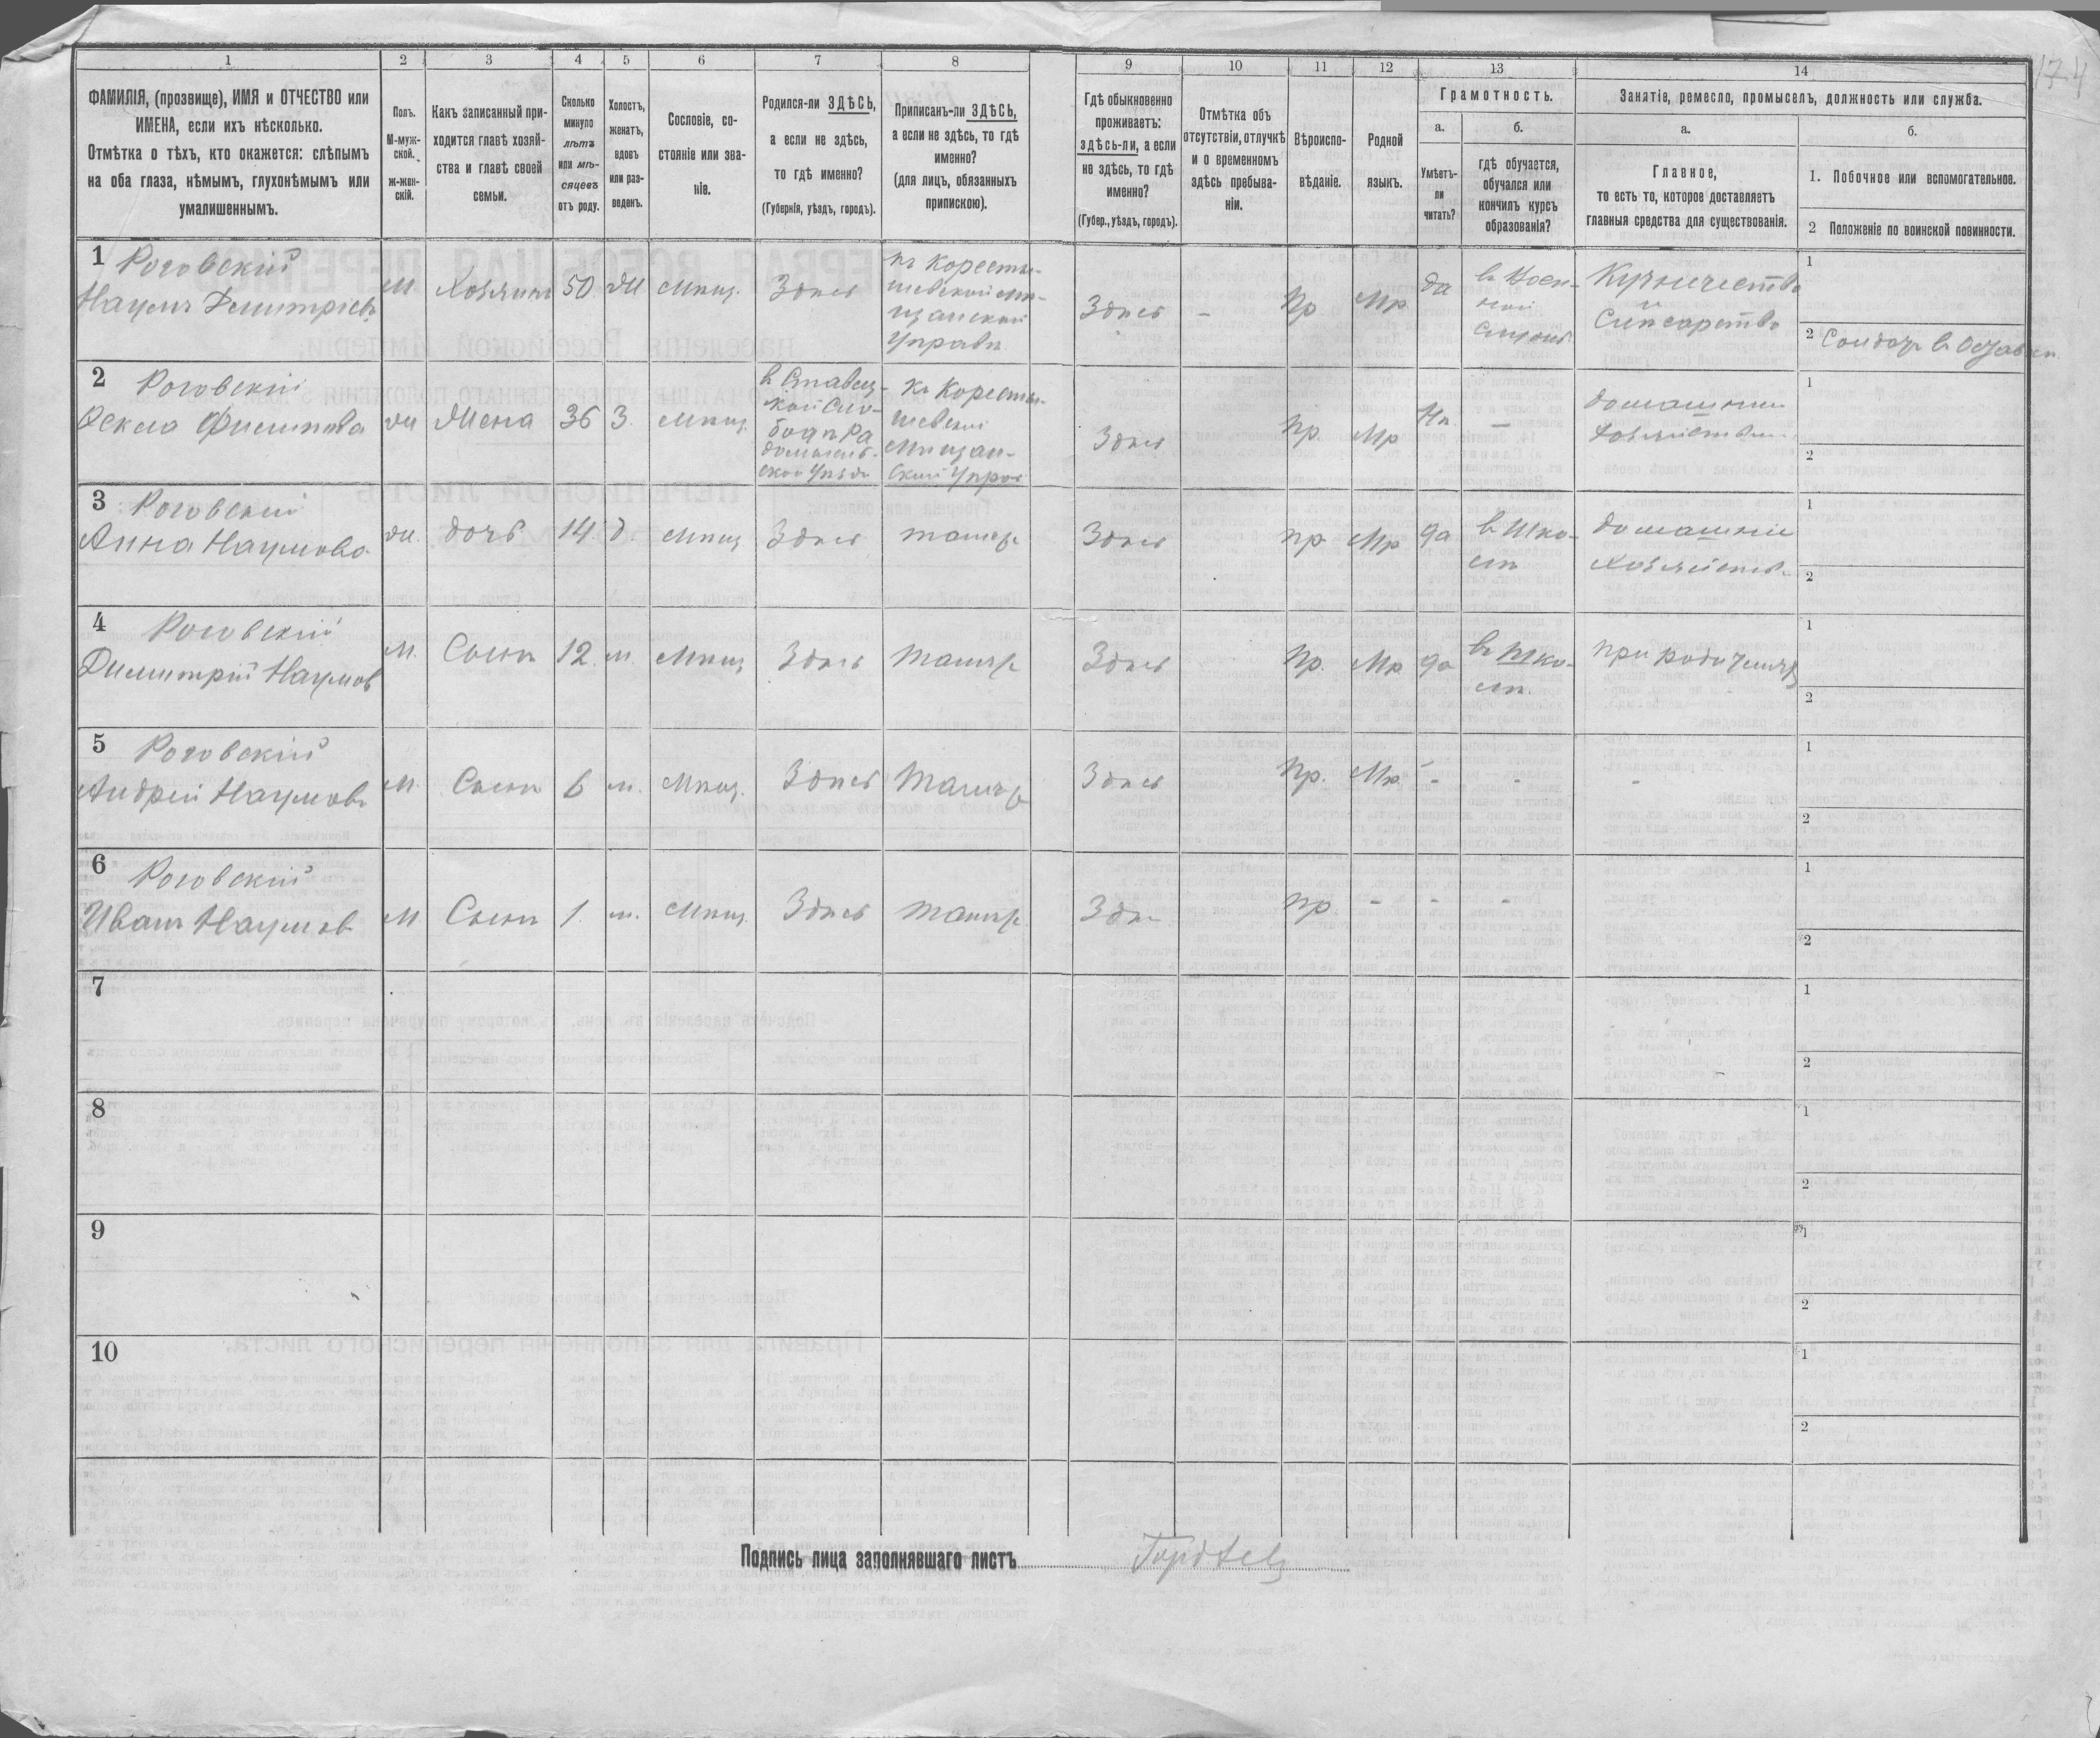 174
1
2
3
4
5
6
7
8
9
10
11
12
13
14
ФАМИЛІЯ, (прозвище), ИМЯ и ОТЧЕСТВО или
ИМЕНА, если ихъ нѣсколько.
Отмѣтка о тѣхъ, кто окажется: слѣпымъ
на оба глаза, нѣмымъ, глухонѣмымъ или
умалишеннымъ.
Полъ.
М-муж-
ской.
ж-жен-
скій.
Какъ записанный при-
ходится главѣ хозяй-
ства и главѣ своей
семьи.
Сколько
минуло
лѣтъ
или мѣ-
сяцевъ
отъ роду.
Холостъ,
женатъ,
вдовъ
или раз-
веденъ.
Сословіе, со-
стояніе или зва-
ніе.
Родился-ли ЗДѢСЬ,
а если не здѣсь,
то гдѣ именно?
(Губернія, уѣздъ, городъ).
Приписанъ-ли ЗДѢСЬ,
а если не здѣсь, то гдѣ
именно?
(для лицъ, обязанныхъ
припискою).
Гдѣ обыкновенно
проживаетъ:
здѣсь-ли, а если
не здѣсь, то гдѣ
именно?
(Губер., уѣздъ, городъ).
Отмѣтка объ
отсутствіи, отлучкѣ
и о временномъ
здѣсь пребыва-
ніи.
Вѣроиспо-
вѣданіе.
Родной
языкъ.
Грамотность.
а.
Умѣетъ-
ли
читать?
б.
гдѣ обучается,
обучался или
кончилъ курсъ
образованія?
Занятіе, ремесло, промыселъ, должность или служба.
а.
Главное,
то есть то, которое доставляетъ
главныя средства для существованія.
б.
1. Побочное или вспомогательное.
2 Положеніе по воинской повинности.
1 Роговскій
Наумъ Демитріевъ
М Хозяинъ 50 ж Мѣщ. Здѣсь
къ Коросты-
шевской Мѣ-
щанской
Управѣ
Здѣсь - Пр Мр да
въ Воен-
ной
Кузничество
и
Слѣсарство
1
2
2 Роговскій
Фекла Филипова
ж Жена 36 З. Мѣщ.
Къ Корости-
шевской
Мѣщан-
ской Упра
Здѣсь Пр. Мр Нѣ -
домашнии
1
2
3 Роговскій
Анна Наумова
ж. дочь 14. д. Мѣщ Здѣсь тамже Здѣсь пр Мр да
въ Шко-
лѣ
домашніе
1
2
4 Роговскій
Димитрій Наумов
М. Сынъ 12. м. Мѣщ Здѣсь тамже Здѣсь Пр. Мр да
въ Шко-
лѣ.
При
1
2
5 Роговскій
Андрей Наумовъ
М. Сынъ 6 м. Мѣщ. Здѣсь тамже Здѣсь Пр. Мр - - -
1
2
6 Роговскій
Иванъ Наумов
М Сынъ 1. м. Мѣщ. Здѣсь тамже Здѣ пр - - -
1
2
7
1
2
8
1
2
9
1
2
10
1
2
Подпись лица заполнявшаго листъ